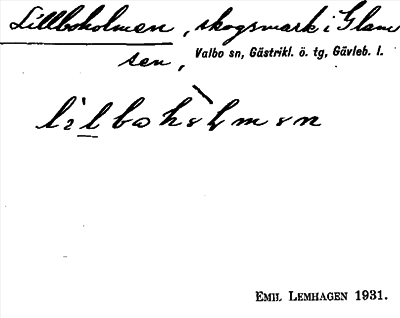 Lillboholmen, skogsmark i Glam
sen, Valbo sn, Gästrikl. ö. tg, Gävleb. l.
lìlboho̱ḷmen
EMIL LEMHAGEN 1931.